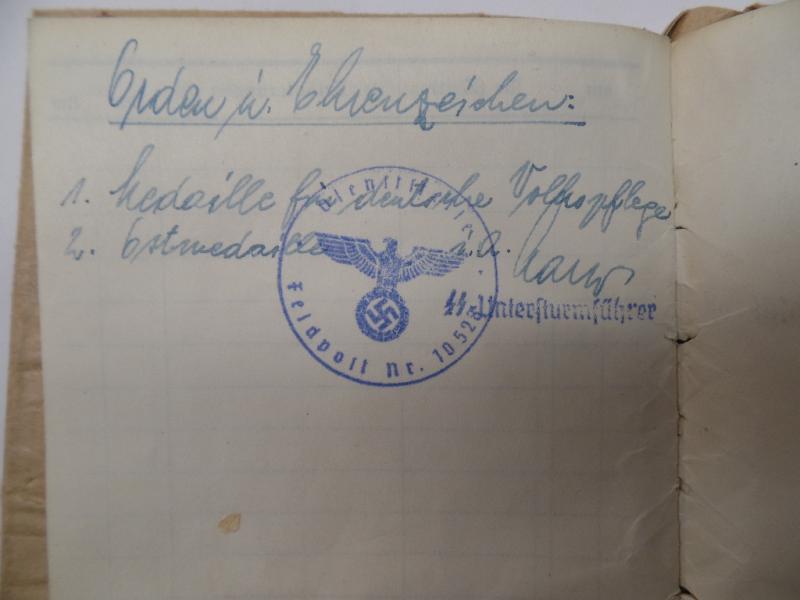 Orden u. Ehrenzeichen:
1. Medaille für deutsche Volkspflege
2. Ostmedaille i.A.
SS-Untersturmführer
Dienststelle
Feldpost Nr. 10528